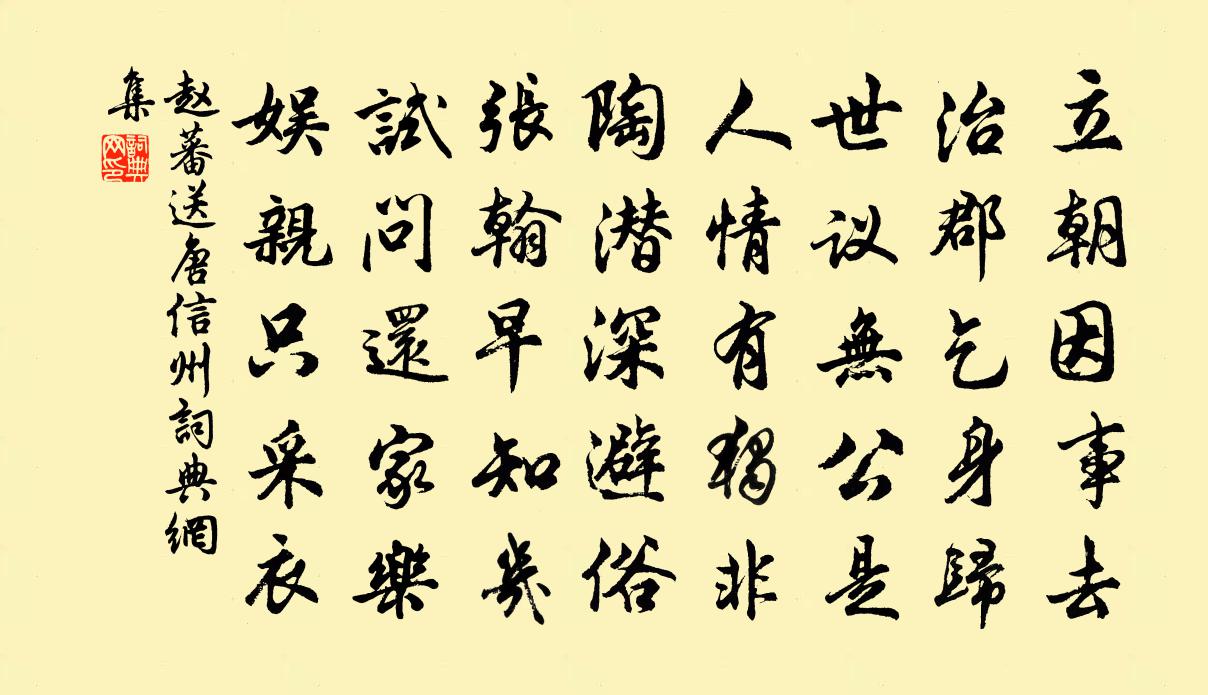 立朝因事去
治郡乞身歸
世议無公是
人情有獨非
陶潜深避俗
張翰早知幾
試問還家樂
娱親只采衣
赵蕃送唐信州詞典網
集
詞典
网印